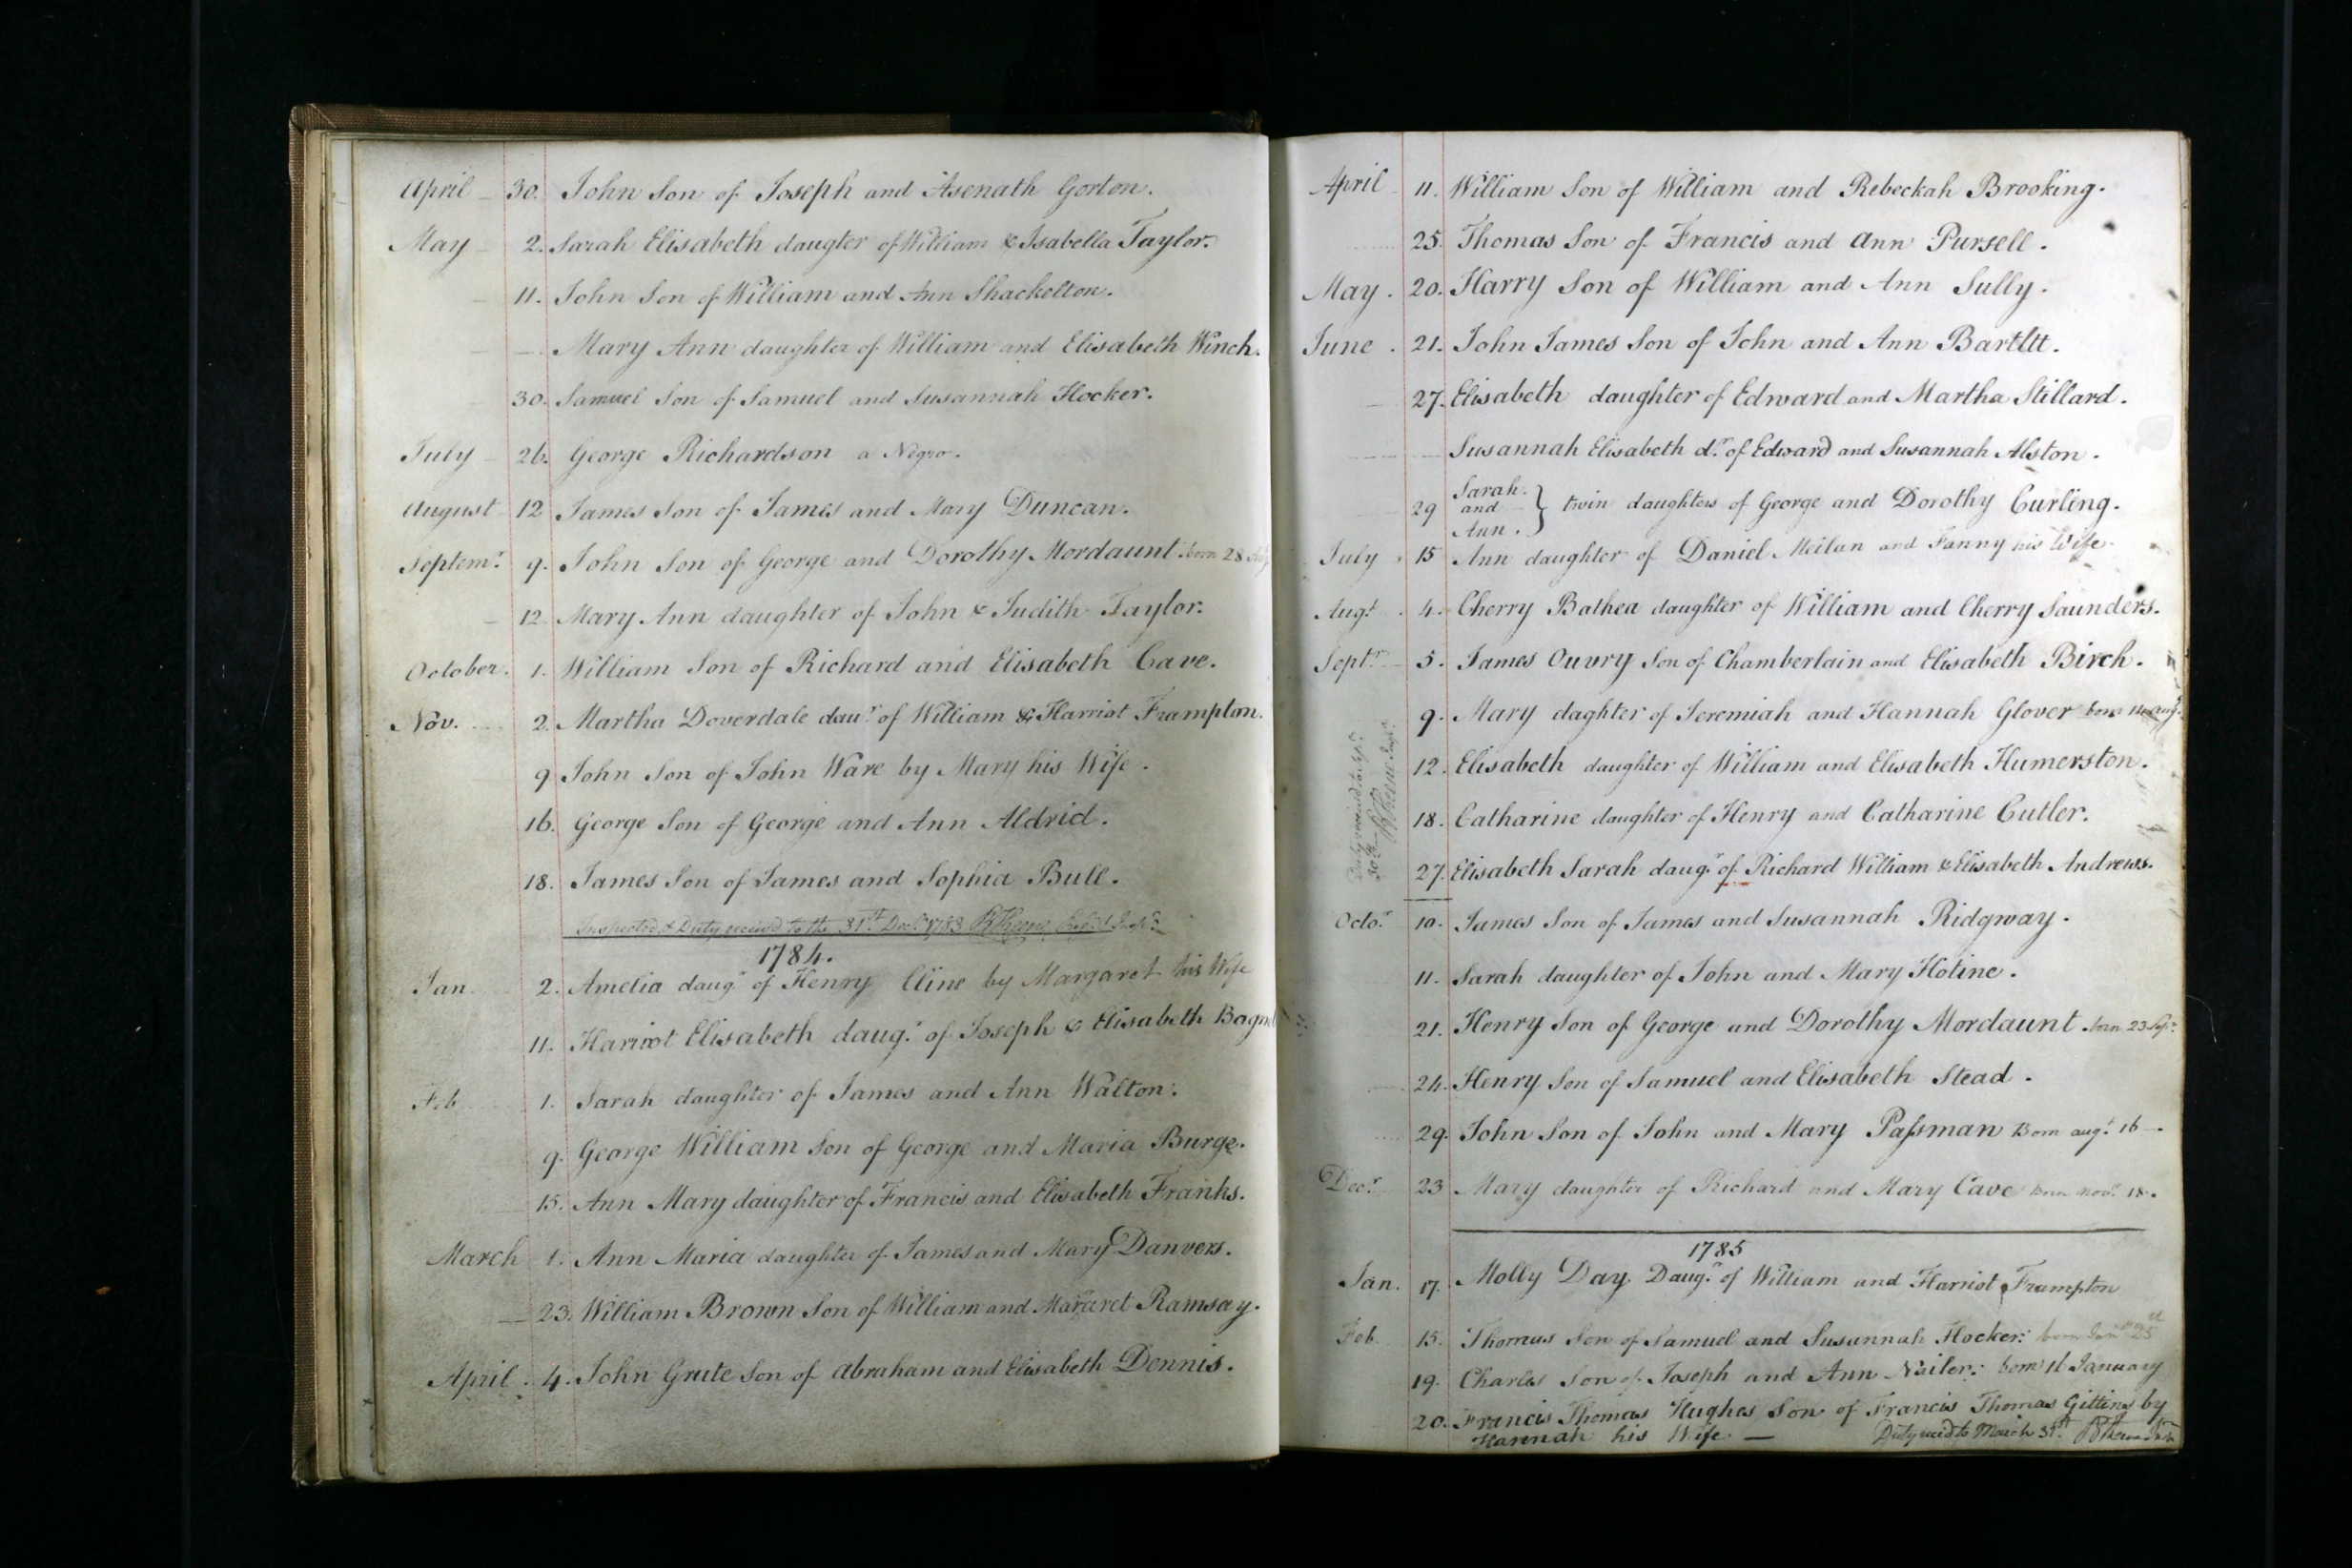 April 30. John Son of Joseph and Asenath Gorton.
May 2. Sarah Elisabeth daugter of William & Isabella Taylor.
11. John Son of William and Ann Shackelton.
Mary Ann daughter of William and Elisabeth Winch.
30. Samuel Son of Samuel and Susannah Hocker.
July 26. George Richardson a Negro.
August 12 James Son of James and Mary Duncan.
Septemr. 9. John Son of George and Dorothy Mordaunt born 28
12 Mary Ann daughter of John & Judith Taylor.
October. 1. William Son of Richard and Elisabeth Cave.
Nov. 2. Martha Doverdale daur. of William & Harriot Frampton.
9 John Son of John Ware by Mary his Wife.
16. George Son of George and Ann Aldrid.
18. James Son of James and Sophia Bull.
Inspected & Duty receivd to the 31st Decr 1783
1784.
Jan 2. Amelia daugr of Henry Cline by Margaret his Wife
11. Harriot Elisabeth daugr. of Joseph & Elisabeth
Feb 1. Sarah daughter of James and Ann Walton.
9. George William Son of George and Maria Burge.
15. Ann Mary daughter of Francis and Elisabeth Franks.
March 1. Ann Maria daughter of James and Mary Danvers.
23. William Brown Son of William and Margaret Ramsay.
April. 4. John Grute Son of Abraham and Elisabeth Dennis.
April 11. William Son of William and Rebeckah Brooking.
25. Thomas Son of Francis and Ann Pursell.
May. 20. Harry Son of William and Ann Sully.
June. 21. John James Son of John and Ann Bartltt.
27. Elisabeth daughter of Edward and Martha Stillard.
Susannah Elisabeth dr. of Edward and Susannah Alston.
29 Sarah and Ann. } twin daughters of George and Dorothy Curling.
July 15 Ann daughter of Daniel Meilan and Fanny his Wife
Augt. 4. Cherry Bathea daughter of William and Cherry Saunders.
Septr. 5. James Ouvry Son of Chamberlain and Elisabeth Birch.
9. Mary daghter of Jeremiah and Hannah Glover born Augt.
12. Elisabeth daughter of William and Elisabeth Humerston.
18. Catharine daughter of Henry and Catharine Cutler.
27. Elisabeth Sarah daugr. of Richard William & Elisabeth Andrews.
Octor. 10. James Son of James and Susannah Ridgway.
11. Sarah daughter of John and Mary Hotine.
21. Henry Son of George and Dorothy Mordaunt born 23 Sepr.
24. Henry Son of Samuel and Elisabeth Stead.
29. John Son of John and Mary Passman Born augt. 16
Decr. 23 Mary daughter of Richard and Mary Cave born novr. 18.
1785
Jan. 17. Molly Day Daugr. of William and Harriot Frampton
Feb 15. Thomas Son of Samuel and Susannah Hocker: born Jany 25
19. Charles Son of Joseph and Ann Neiler: born 16 January
20. Francis Thomas Hughes Son of Francis Thomas Gitting by
Hannah his Wife — Duty recd to March 31st.